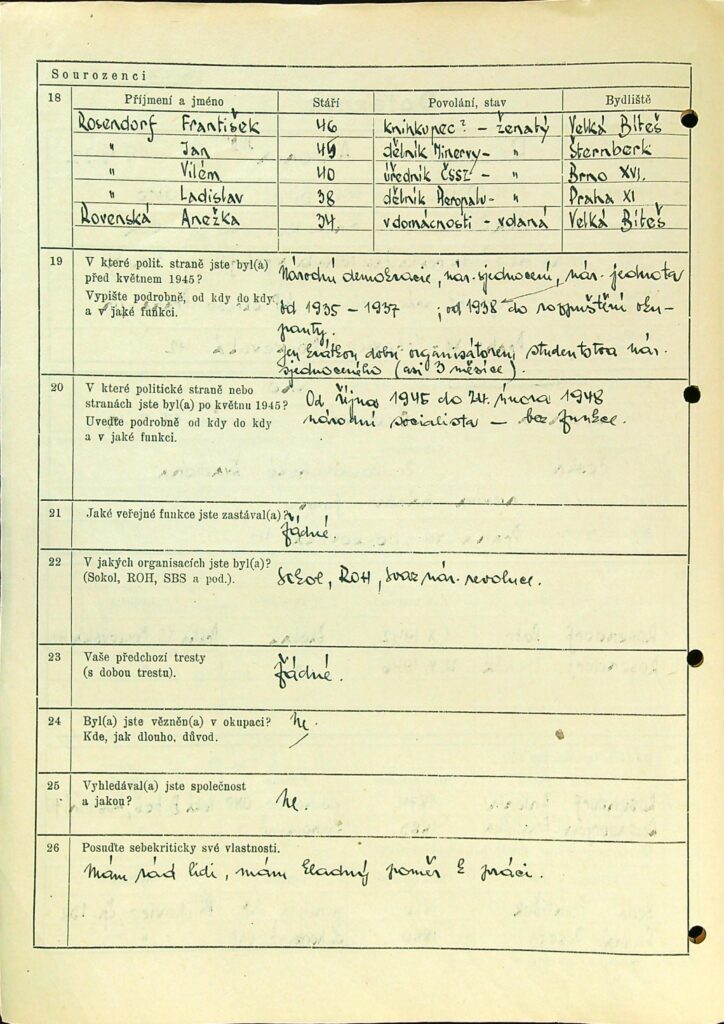 Sourozenci
18 Příjmení a jméno Stáří Povolání, stav Bydliště
Rosendorf František 46 knihkupec - ženatý Velká Bíteš
" Jan 45 dělník Minervy - " Šternberk
" Vilém 40 úředník ČSSZ - " Brno XVI.
" Ladislav 38 dělník Aeropalu - " Praha XI
Rovenská Anežka 34 v domácnosti - vdaná Velká Bíteš
19 V které polit. straně jste byl(a) před květnem 1945?
Vypište podrobně, od kdy do kdy a v jaké funkci.
Národní demokracie, nár. sjednocení, nár. jednota
od 1935 – 1937 ; od 1938 do rozpuštění oku-
panty.
jen krátkou dobu organisátorem studentstva nár.
sjednoceného (asi 3 měsíce).
20 V které politické straně nebo stranách jste byl(a) po květnu 1945?
Uveďte podrobně od kdy do kdy a v jaké funkci.
Od října 1945 do 24. února 1948
národní socialista – bez funkce.
21 Jaké veřejné funkce jste zastával(a)?
žádné.
22 V jakých organisacích jste byl(a)?
(Sokol, ROH, SBS a pod.).
Sokol, ROH, svaz nár. revoluce.
23 Vaše předchozí tresty
(s dobou trestu).
žádné.
24 Byl(a) jste vězněn(a) v okupaci?
Kde, jak dlouho, důvod.
Ne.
25 Vyhledával(a) jste společnost
a jakou?
Ne.
26 Posuďte sebekriticky své vlastnosti.
Mám rád lidi, mám kladný poměr k práci.